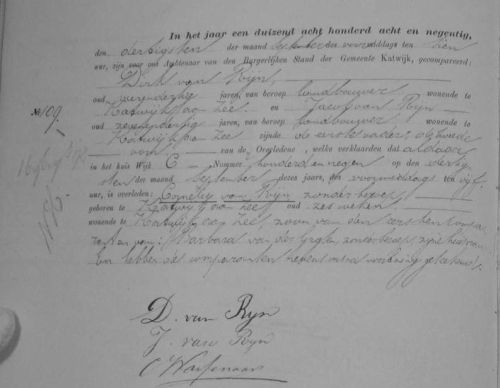 In het jaar een duizend acht honderd acht en negentig,
den dertigsten der maand des voormiddags ten tien
ure, zijn voor ons Ambtenaar van den Burgerlijken Stand der Gemeente Katwijk, gecompareerd:
Dirk van Rijn
oud jaren, van beroep landbouwer wonende te
Katwijk aan Zee en Jacob van Rijn
No. 109. oud jaren, van beroep landbouwer wonende te
Katwijk aan Zee zijnde de eerste vader, de tweede
oom van de Overledene, welke verklaarden dat aldaar
in het huis Wijk C Nummer honderd en negen op den
der maand September dezes jaars, des voormiddags ten vijf
ure, is overleden: Cornelis van Rijn zonder beroep
geboren te Katwijk aan Zee oud zes weken
wonende te Katwijk aan Zee, zoon van den eersten
en van: Barbara van der zonder beroep, zijne huisvrouw
En hebben de comparanten nevens ons na voorlezing geteekend.
D. van Ryn
J. van Ryn